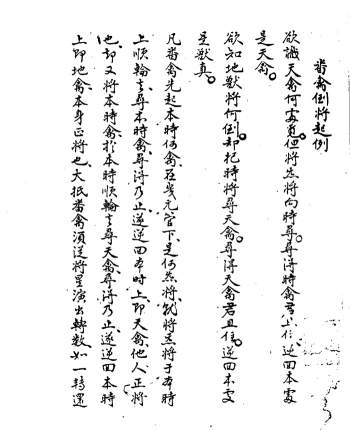 番禽倒將起例
欲識天禽何處覓但將炁將向時尋尋得時禽君上任逆回本處
是天禽
欲知地獸將何倒却把時將尋天禽尋得天禽君且住逆回本支
是獸真
凡番禽先起本時何禽在幾元管下是何炁將就將炁將于本時
上順輪去尋本時禽尋得乃止遂逆回本時上即天禽他人正將
也却又將本時禽於本時順輪去尋天禽尋得乃止遂逆回本時
上即地禽本身正將也大抵番禽須從將星演出轉數如一轉還